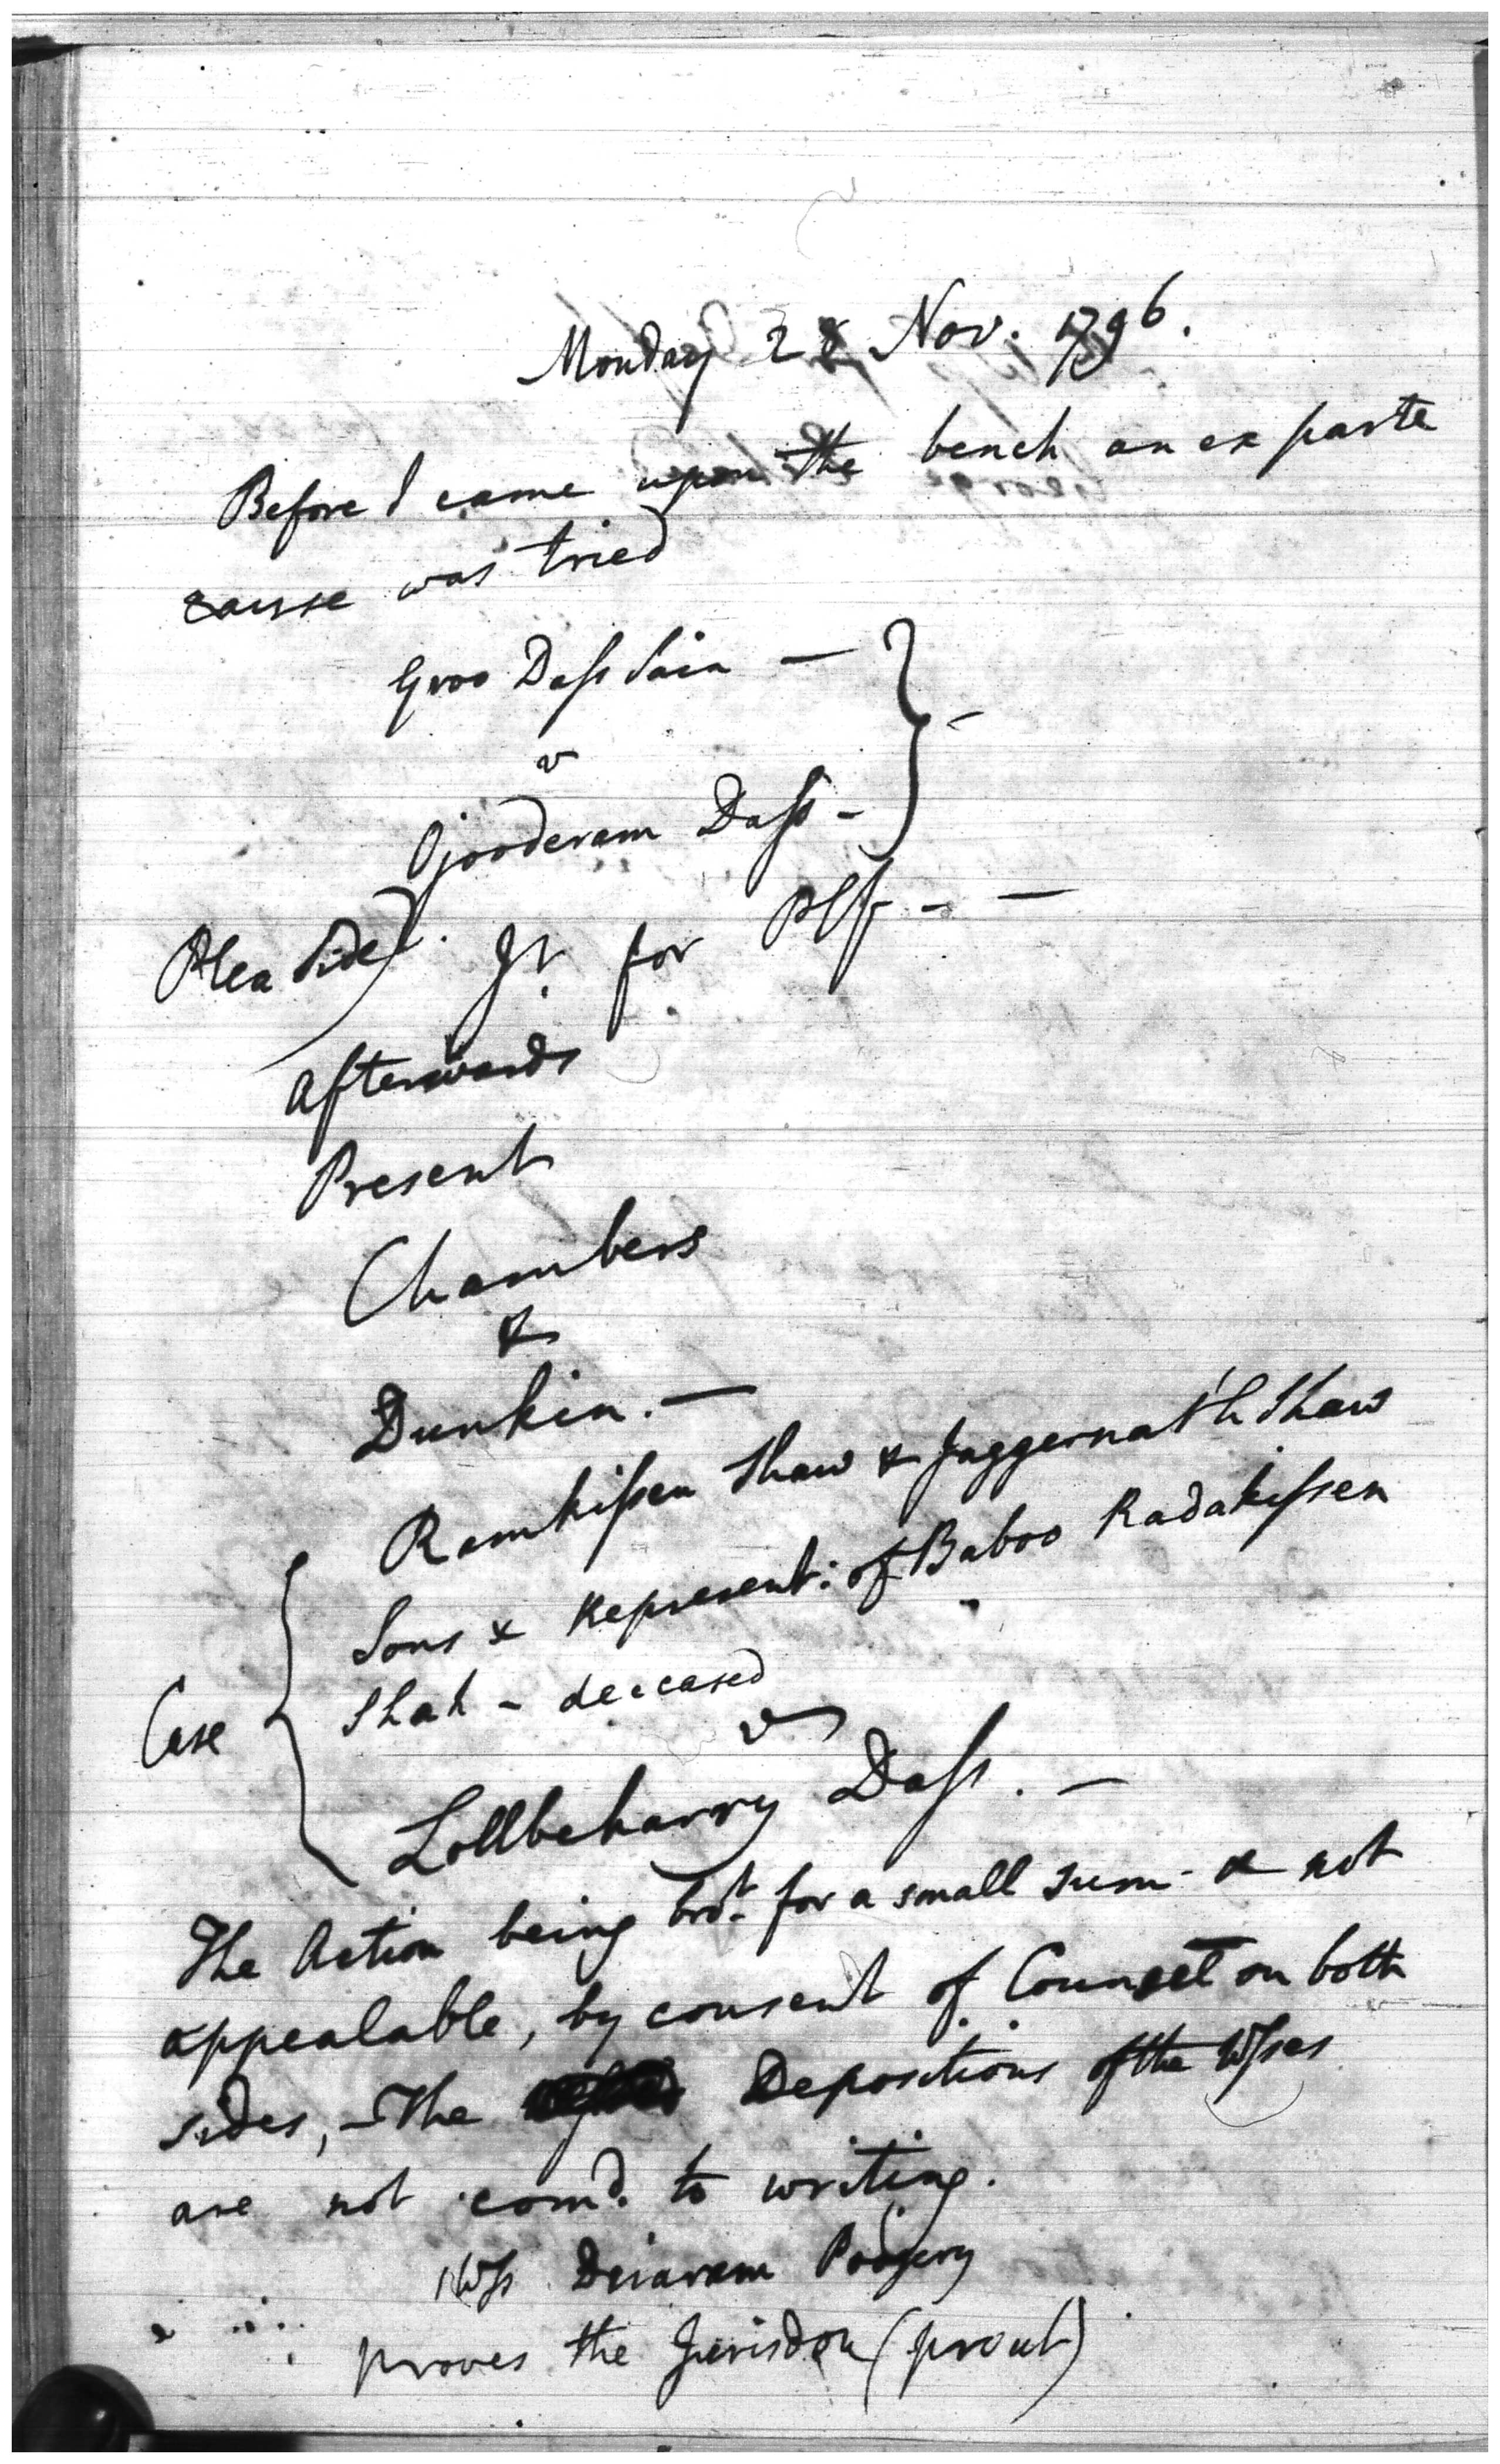 Monday 28 Nov. 1796.
Before I came upon the bench an ex parte
cause was tried
Groo Dass Sain —
v
Ojooderam Dass -
Plea Side). Jt. for Plff - —
Afterwards
Present
Chambers
&
Dunkin. —
Ramkissen Shaw & Juggernath Shaw
Sons & Represent: of Baboo Radakissen
Case Shah - deceased
v
Lollbeharry Dass. —
The Action being brot. for a small sum - & not
appealable, by consent of Counsel on both
sides, - The Depositions of the Wsses
are not comd. to writing.
1 Wss Deiaram
proves the Jurisdon (prout)